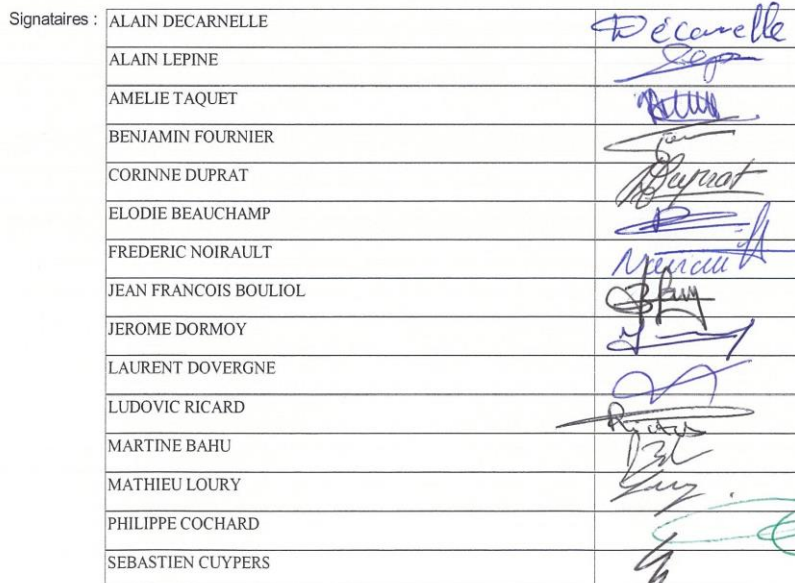 Signataires :
ALAIN DECARNELLE Décarnelle
ALAIN LEPINE
AMELIE TAQUET
BENJAMIN FOURNIER
CORINNE DUPRAT Duprat
ELODIE BEAUCHAMP
FREDERIC NOIRAULT
JEAN FRANCOIS BOULIOL
JEROME DORMOY
LAURENT DOVERGNE
LUDOVIC RICARD
MARTINE BAHU
MATHIEU LOURY
PHILIPPE COCHARD
SEBASTIEN CUYPERS